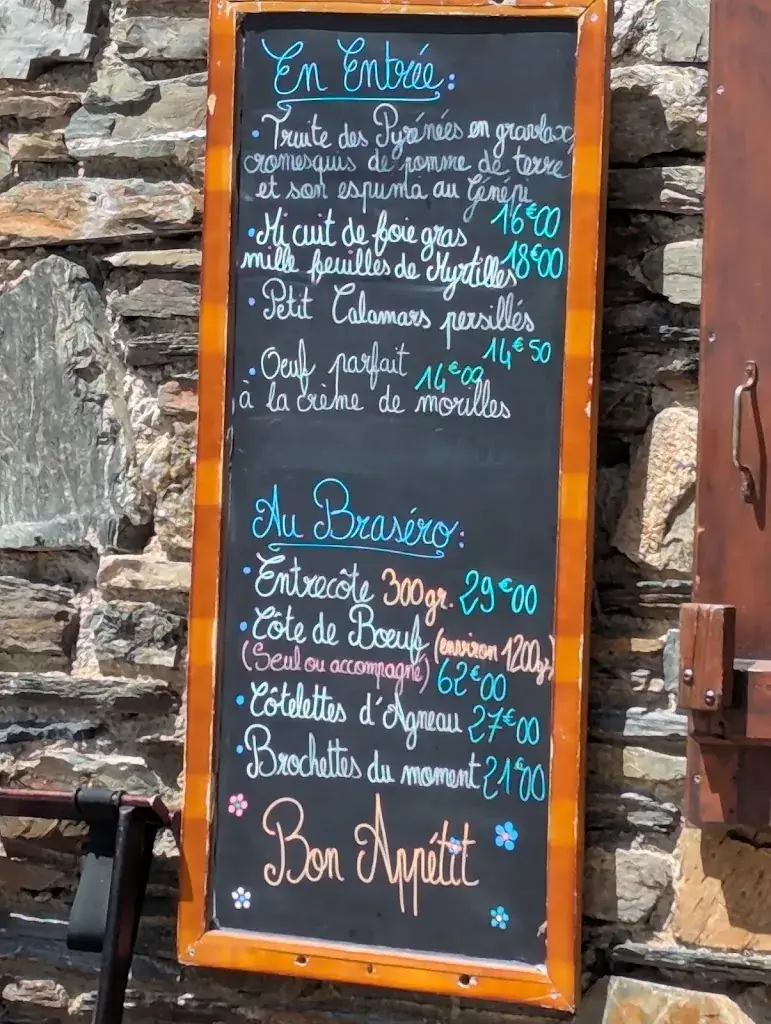 En Entrée :
• Truite des Pyrénées en gravlax,
cromesquis de pomme de terre
et son espuma au Génépi
16€00
• Mi cuit de foie gras
mille feuilles de Myrtilles 18€00
• Petit Calamars persillés
14€50
• Oeuf parfait 14€00
à la crème de morilles
Au Braséro :
• Entrecôte 300gr. 29€00
• Côte de Boeuf (environ 1200gr)
(Seul ou accompagné) 62€00
• Côtelettes d'Agneau 27€00
• Brochettes du moment 21€00
Bon Appétit